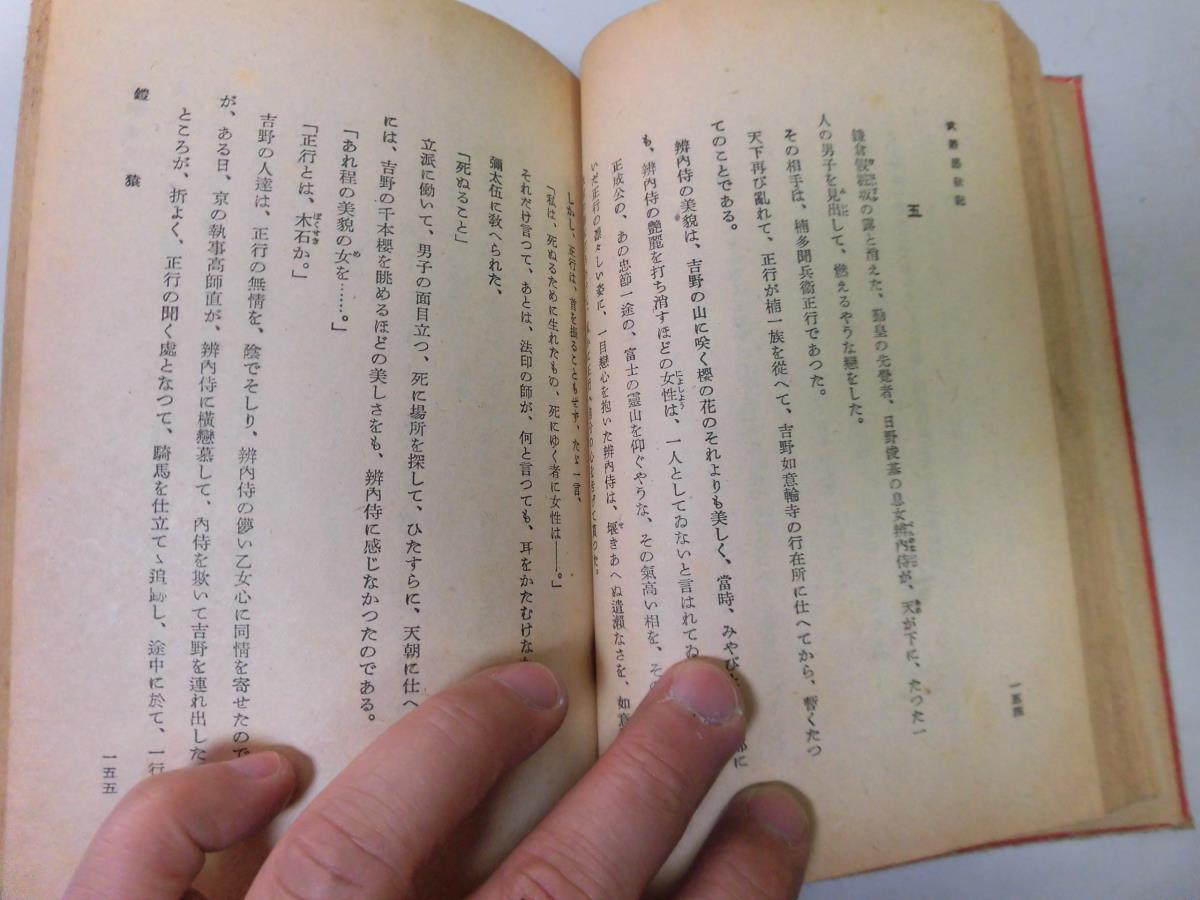 五
鎌倉假粧坂の露と消えた、勤皇の先覺者、日野俊基の息女辨內侍が、天が下に、たつた一
人の男子を見出して、燃えるやうな戀をした。
その相手は、楠多聞兵衞正行であつた。
天下再び亂れて、正行が楠一族を從へて、吉野如意輪寺の行在所に仕へてから、暫くたつ
てのことである。
辨內侍の美貌は、吉野の山に咲く櫻の花のそれよりも美しく、當時、みやび
に
も、辨內侍の艷麗を打ち消すほどの女性は、一人としてゐないと言はれてゐ
正成公の、あの忠節一途の、富士の靈山を仰ぐやうな、その氣高い相を、その
いだ正行の凛々しい姿に、一目戀心を抱いた辨內侍は、堰きあへぬ遣瀨なさを、如意
一五四
しかし、正行は、首を振ることもせず、たゞ一言、
「私は、死ぬるために生れたもの、死にゆく者に女性は――。」
それだけ言つて、あとは、法印の師が、何と言つても、耳をかたむけな
彌太伍に敎へられた、
「死ぬること」
立派に働いて、男子の面目立つ、死に場所を探して、ひたすらに、天朝に仕へ
には、吉野の千本櫻を眺めるほどの美しさをも、辨內侍に感じなかつたのである。
「あれ程の美貌の女を……。」
「正行とは、木石か。」
吉野の人達は、正行の無情を、陰でそしり、辨內侍の儚い乙女心に同情を寄せたので
が、ある日、京の執事高師直が、辨內侍に橫戀慕して、內侍を欺いて吉野を連れ出した
ところが、折よく、正行の聞く處となつて、騎馬を仕立てゝ追跡し、途中に於て、一行
鎧 猿
一五五